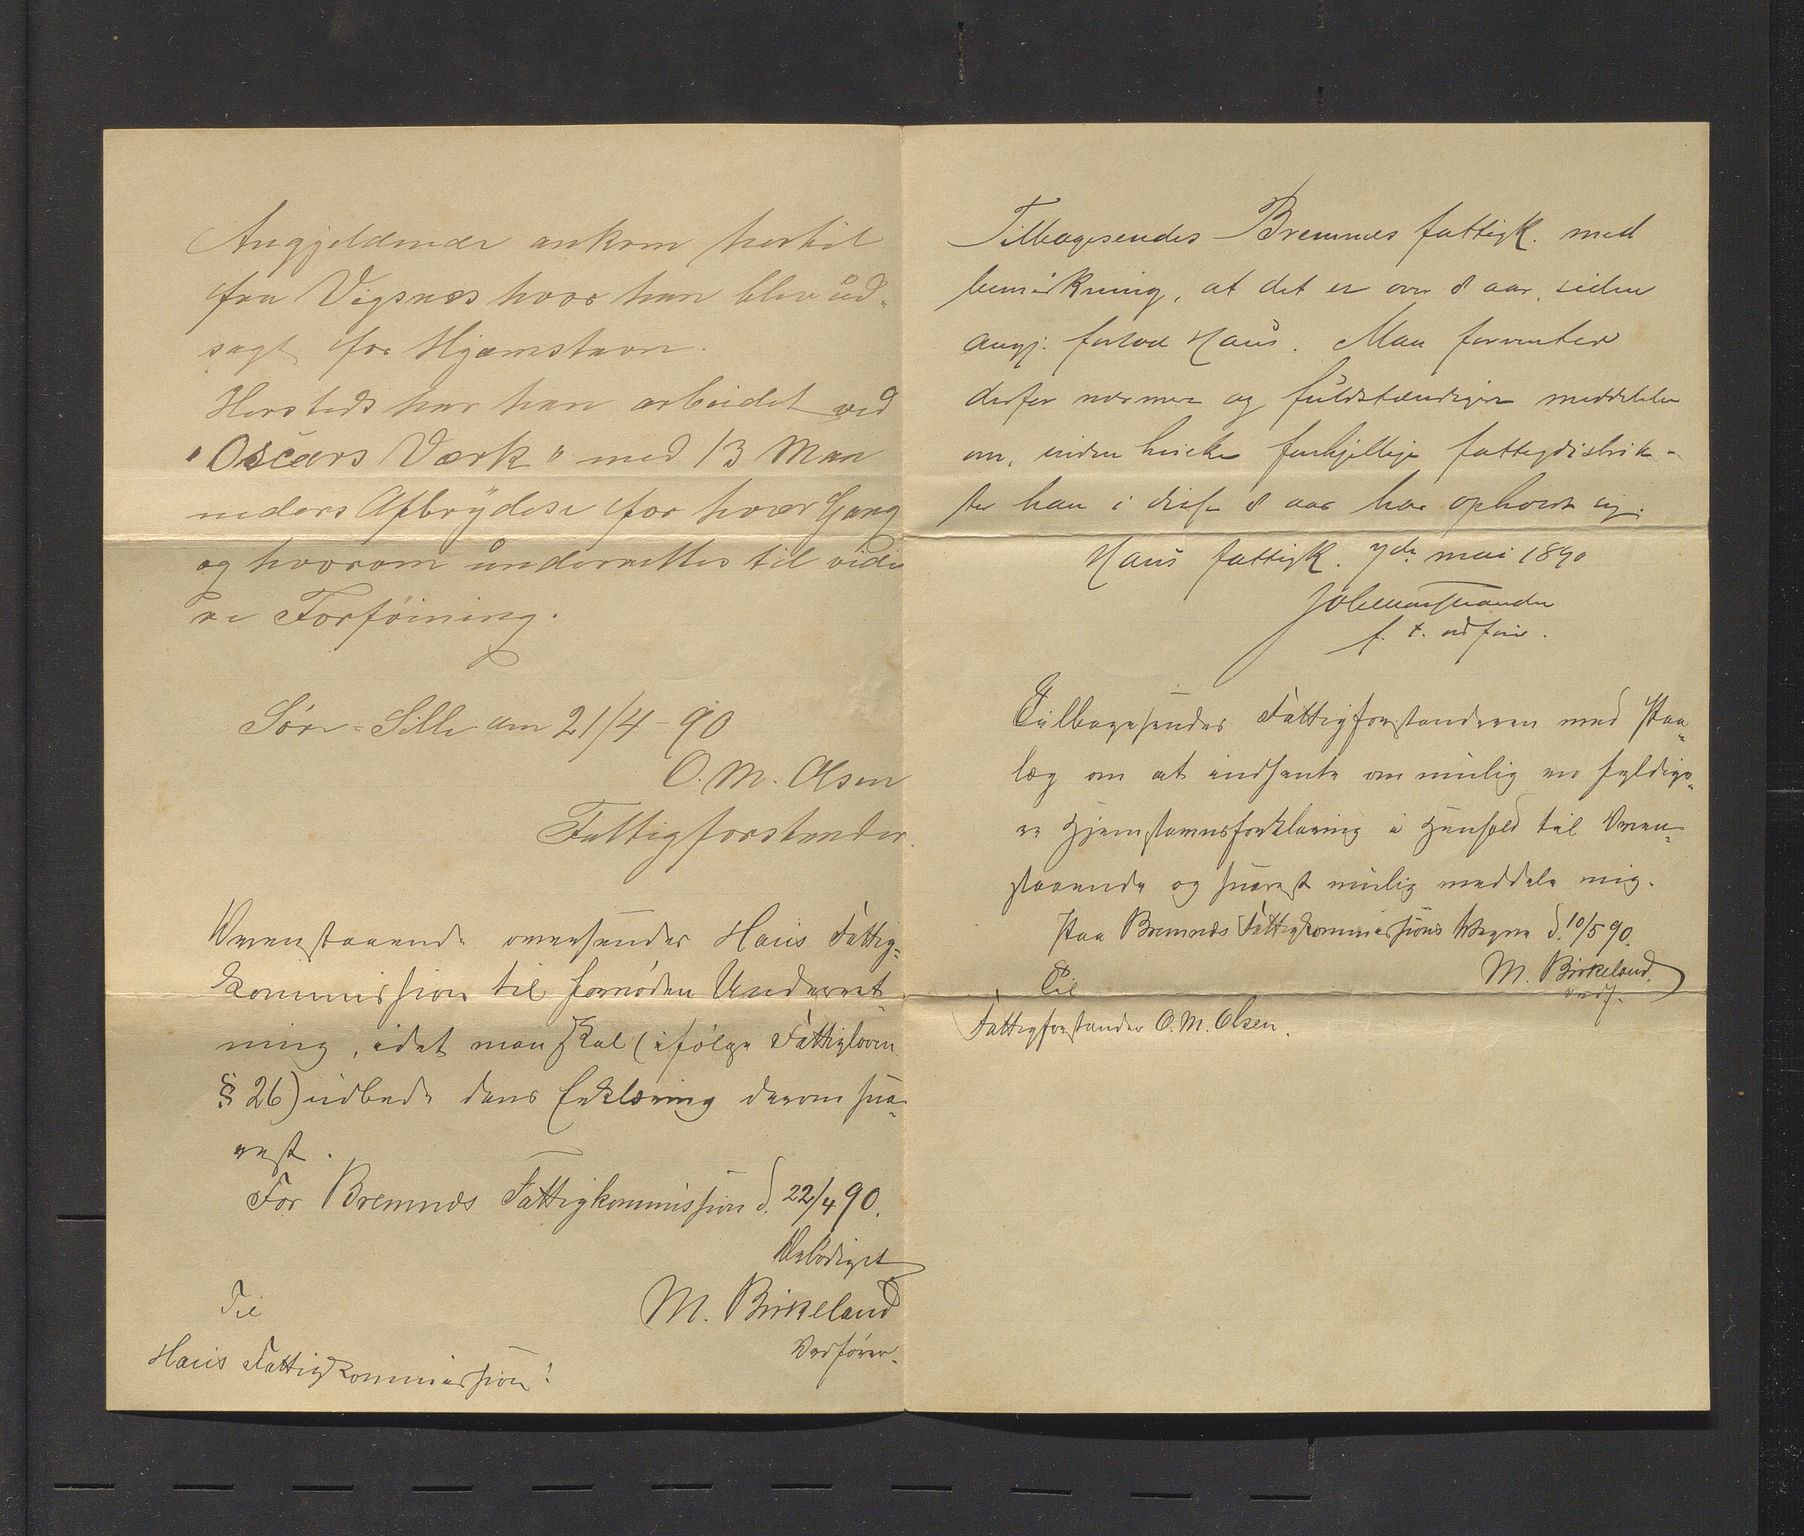 Angjeldende ankom hertil
fra Vigsnes hvor han blev ud-
sagt for Hjæmstavn.
Hersteds har han arbeidet ved
"Oscars Værk" med 13 Maa
neders Afbrydese for hver Gang
og hvorom underrettes til vide
re Forföining.
Söre-Lille am 21/4-90
O. M. Olsen
Fattigforstander.
Ovenstaaende oversendes Haus Fattig-
kommission til fornøden Underret
ning, idet man skal (ifølge Fattigloven
§ 26) udbede dens Erklæring derom sna-
rest.
For Bremnæs Fattigkommission d. 22/4 90.
Ærbødigst
M. Birkeland
Ordfører.
Til
Haus Fattigkommission!
Tilbagesendes Bremnes fattigk. med
bemærkning, at det er over 8 aar, siden
angj. forlod Haus. Man forventer
derfor nærmere og fuldstændigere meddelelse
om, inden hvilke forskjellige fattigdistrik-
ter han i disse 8 aar har opholdt sig.
Haus fattigk. 7de mai 1890
f. t. ordfører.
Tilbagesendes Fattigforstanderen med Paa-
læg om at indhente om mulig en fyldige-
re Hjemstavnsforklaring i Henhold til Oven-
staaende og snarest mulig meddele mig.
Paa Bremnæs Fattigkommissions Vegne d. 10/5 90.
M. Birkeland.
ordf.
Til
Fattigforstander O. M. Olsen.